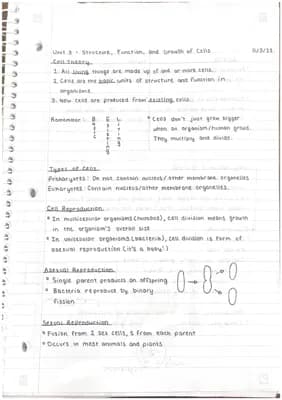 Unit 3 - Structure, Function, and Growth of Cells
Cell Theory
1. All living things are made up of one or more cells.
2. Cells are the basic units of structure and function in
organisms.
3. New cells are produced from existing cells.
Remember: B E L
Basic
Existing
Living
* Cells don't just grow bigger
when an organism/human grows.
They multiply and divide.
Types of Cells
Prokaryotes: Do not contain nucleus/other membrane organelles
Eukaryotes: Contain nucleus/other membrane organelles.
Cell Reproduction
* In multicellular organisms (humans), cell division means growth
in the organism's overall size
* In unicellular organisms (bacteria), cell division is form of
asexual reproduction (it's a baby!)
Asexual Reproduction
* Single parent produces an offspring
* Bacteria reproduce by binary
fission
Sexual Reproduction
* Fusion from 2 sex cells, 1 from each parent
* Occurs in most animals and plants